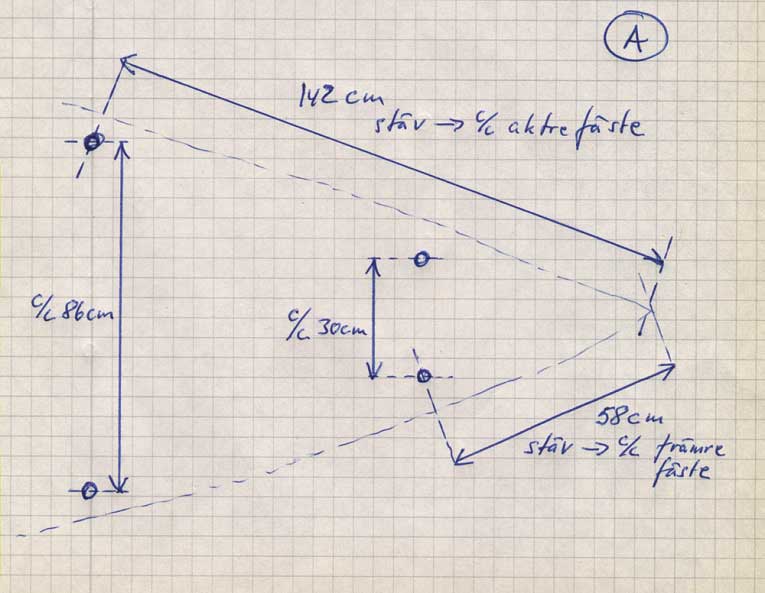 A
142 cm
stäv → c/c aktre fäste
c/c 86cm
c/c 30cm
58cm
stäv → c/c främre
fäste